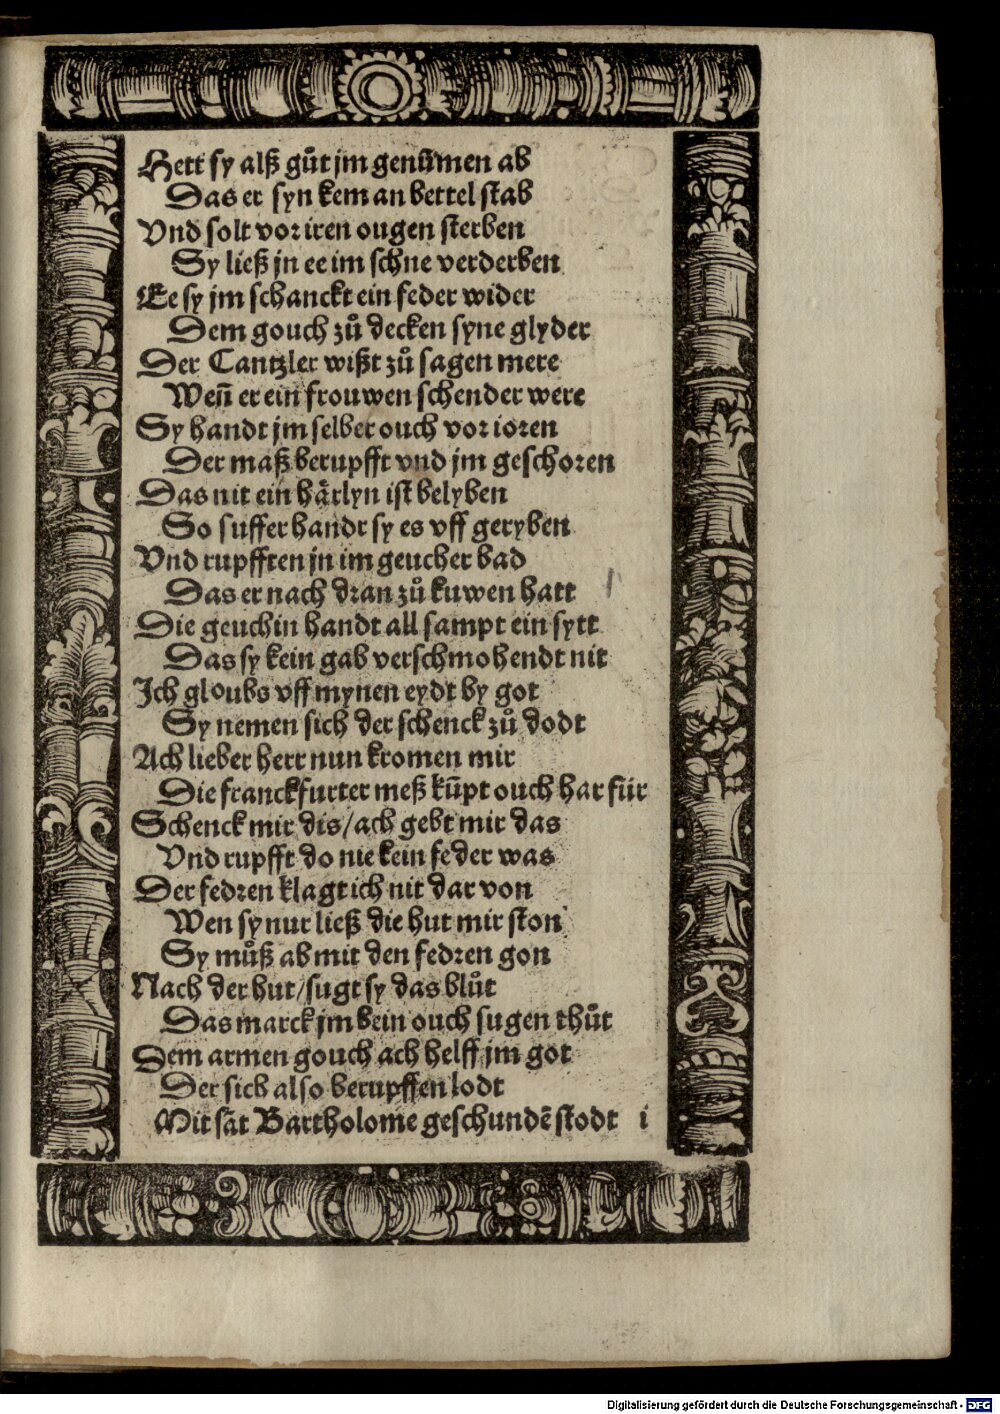 Hett sy alß gůt jm genūmen ab
Das er syn kem an bettel stab
Vnd solt vor iren ougen sterben
Sy ließ jn ee im schne verderben
Ee sy jm schanckt ein feder wider
Dem gouch zů decken syne glyder
Der Cantzler wißt zů sagen mere
Weñ er ein frouwen schender were
Sy handt jm selber ouch vor ioren
Der maß berupfft vnd jm geschoren
Das nit ein härlyn ist belyben
So suffer handt sy es vff geryben
Vnd rupfften jn im geucher bad
Das er nach dran zů kuwen hatt
Die geuchin handt all sampt ein sytt
Das sy kein gab verschmohendt nit
Ich gloubs vff mynen eydt by got
Sy nemen sich der schenck zů dodt
Ach lieber herr nun kromen mir
Die franckfurter meß kūpt ouch har für
Schenck mir dis/ach gebt mir das
Vnd rupfft do nie kein feder was
Der fedren klagt ich nit dar von
Wen sy nur ließ die hut mir ston
Sy můß ab mit den fedren gon
Nach der hut/sugt sy das blůt
Das marck jm bein ouch sugen thůt
Dem armen gouch ach helff jm got
Der sich also berupffen lodt
Mit sāt Bartholome geschundē stodt i
Digitalisierung gefördert durch die Deutsche Forschungsgemeinschaft - DFG